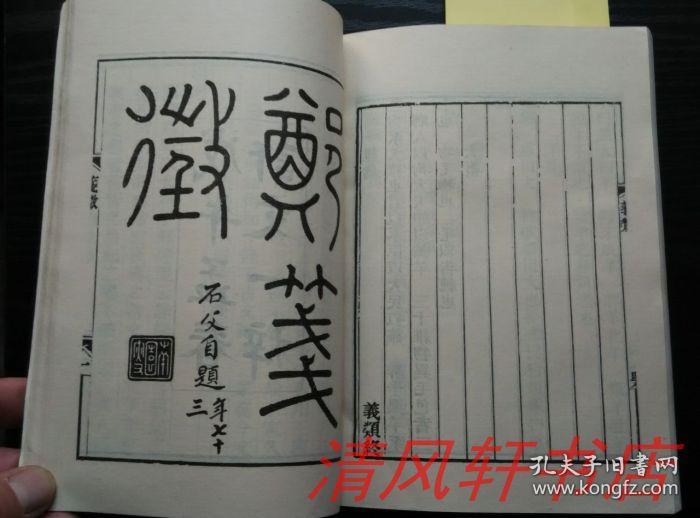 義類終
鄭箋
徵
石父自題
年七十
三
清风轩书店
孔夫子旧书网
www.kongfz.com